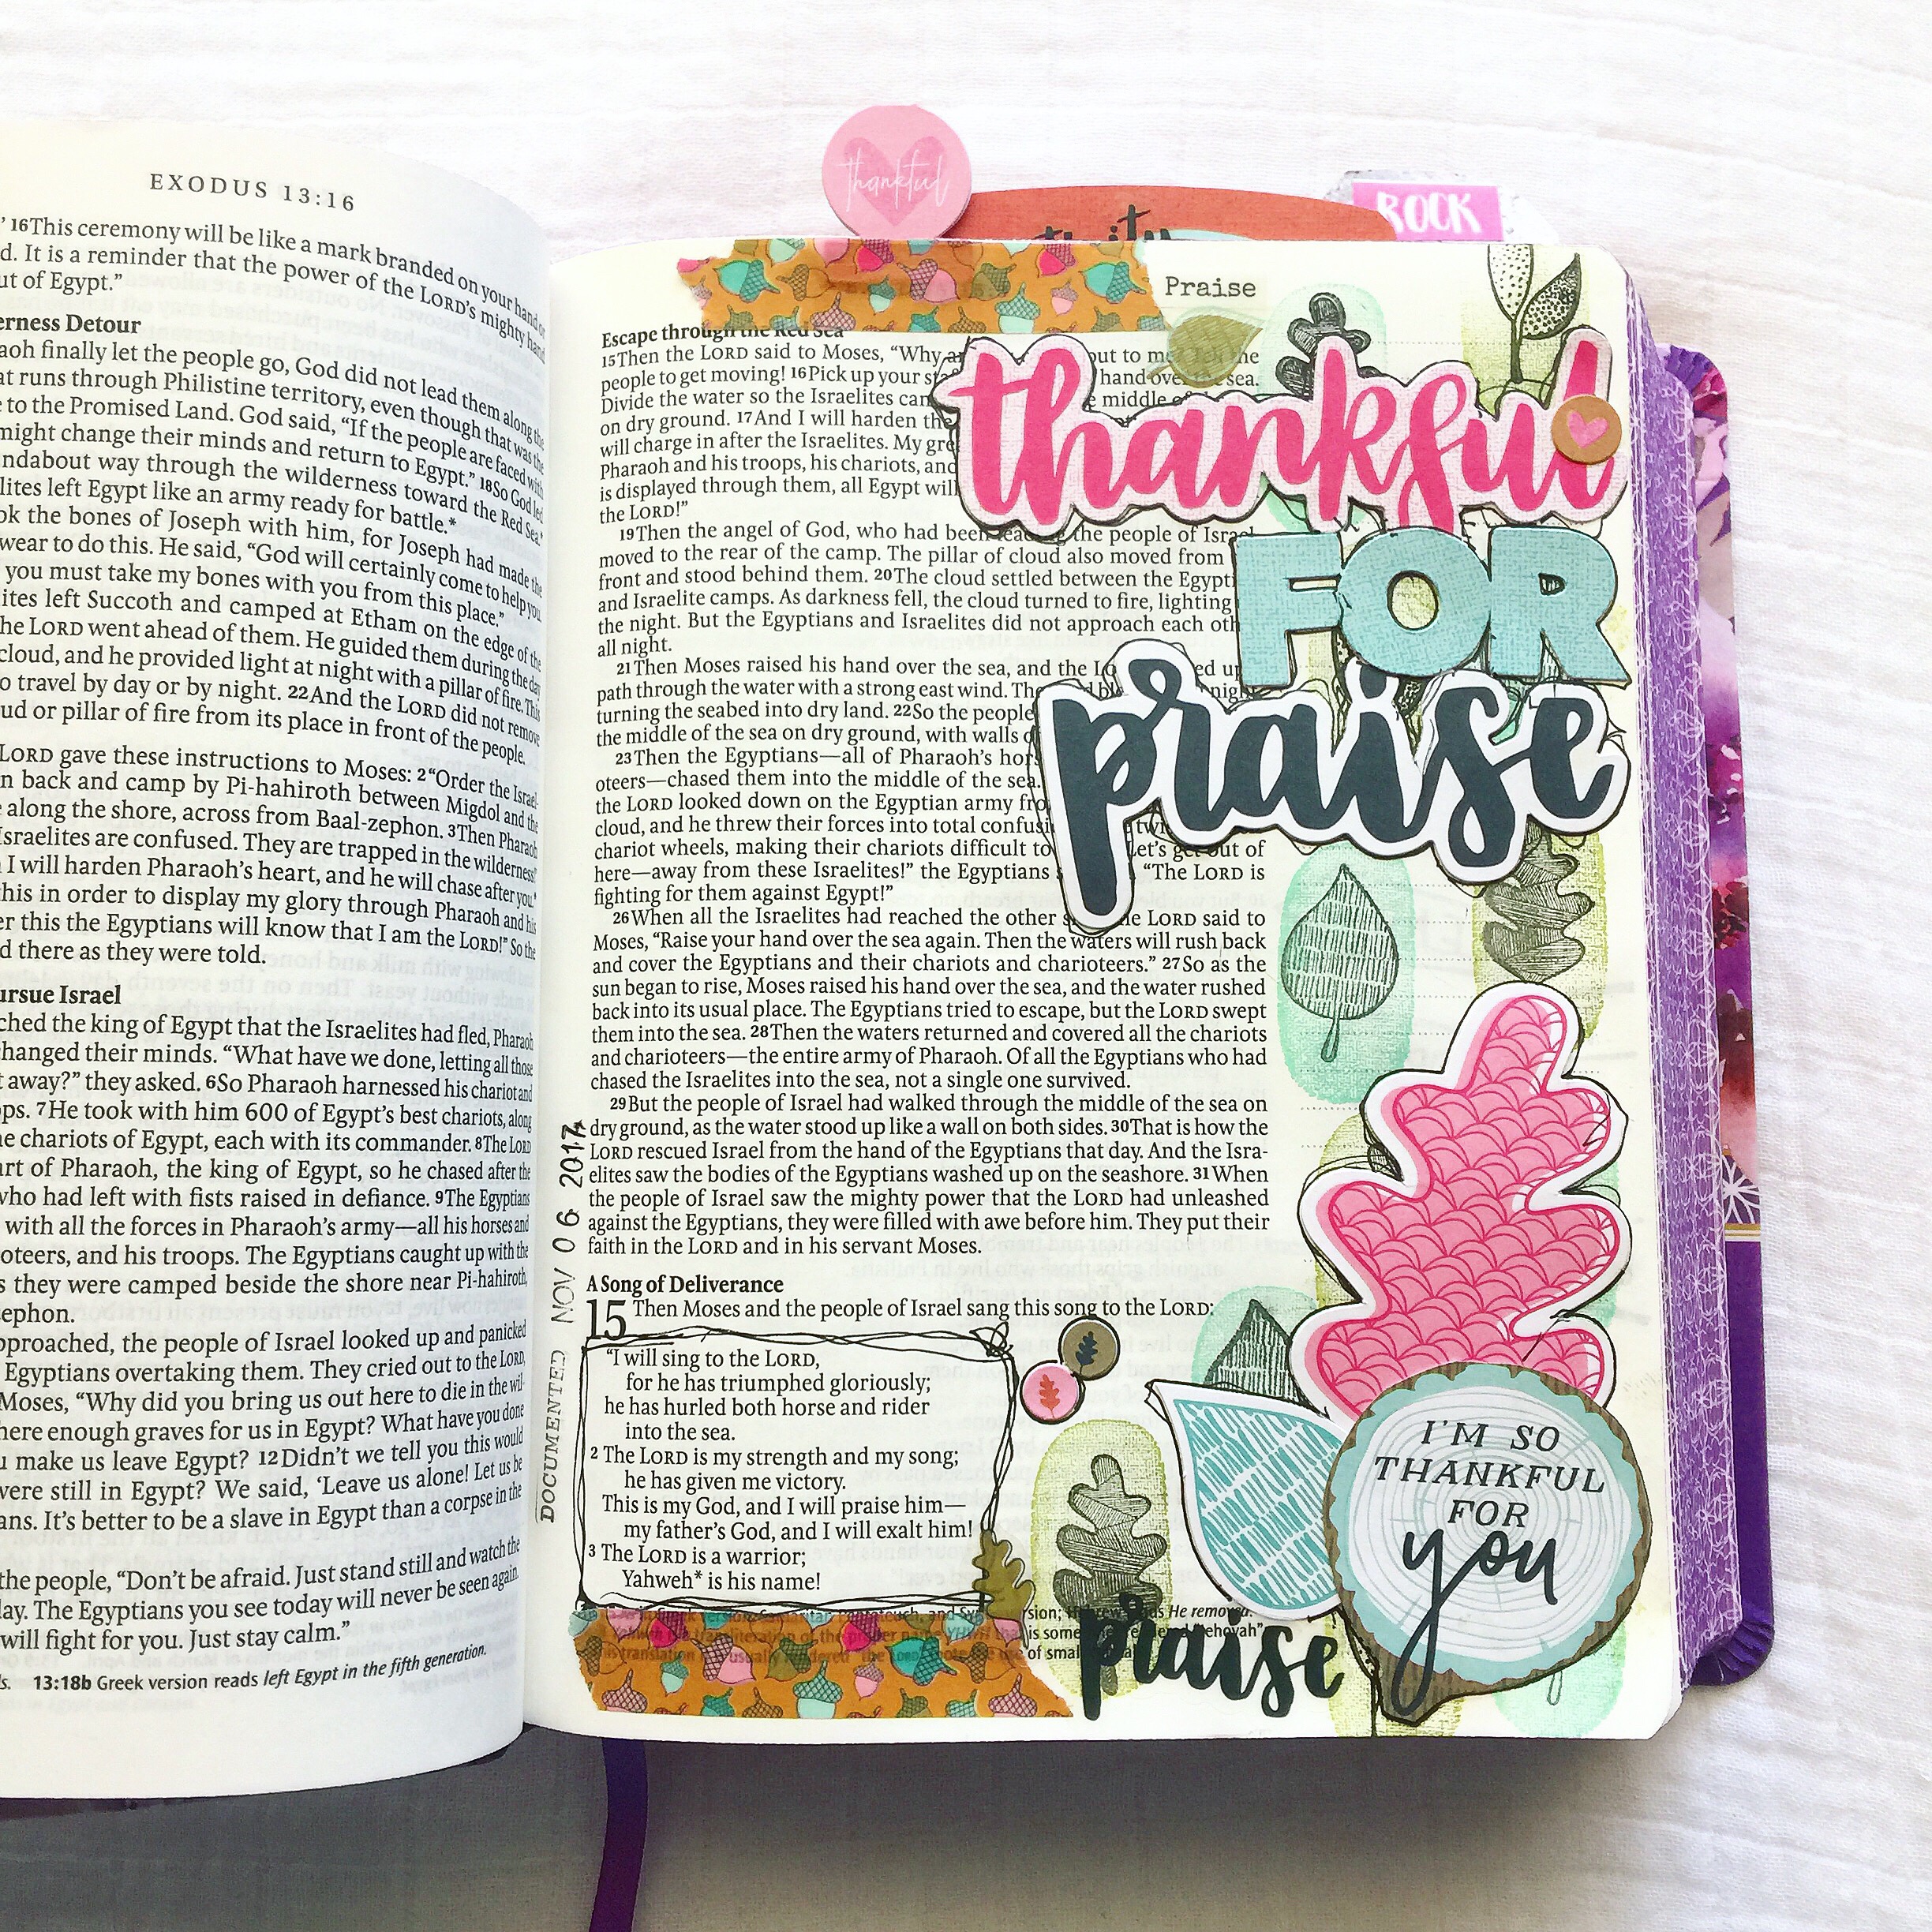 EXODUS 13:16
16This ceremony will be like a mark branded on your hand or
d. It is a reminder that the power of the LORD's mighty hand
ut of Egypt."
erness Detour
aoh finally let the people go, God did not lead them along the
at runs through Philistine territory, even though that was the
to the Promised Land. God said, "If the people are faced with
might change their minds and return to Egypt." 18So God led
ndabout way through the wilderness toward the Red Sea.
lites left Egypt like an army ready for battle.*
ok the bones of Joseph with him, for Joseph had made the
wear to do this. He said, "God will certainly come to help you
you must take my bones with you from this place."
ites left Succoth and camped at Etham on the edge of the
he LORD went ahead of them. He guided them during the day
cloud, and he provided light at night with a pillar of fire. This
o travel by day or by night. 22And the LORD did not remove
ud or pillar of fire from its place in front of the people.
LORD gave these instructions to Moses: 2"Order the Israel-
n back and camp by Pi-hahiroth between Migdol and the
along the shore, across from Baal-zephon. 3Then Pharaoh
Israelites are confused. They are trapped in the wilderness!'
I will harden Pharaoh's heart, and he will chase after you.*
his in order to display my glory through Pharaoh and his
er this the Egyptians will know that I am the LORD!" So the
d there as they were told.
ursue Israel
ched the king of Egypt that the Israelites had fled, Pharaoh
changed their minds. "What have we done, letting all those
t away?" they asked. 6So Pharaoh harnessed his chariot and
ops. 7He took with him 600 of Egypt's best chariots, along
e chariots of Egypt, each with its commander. 8The LORD
art of Pharaoh, the king of Egypt, so he chased after the
who had left with fists raised in defiance. 9The Egyptians
with all the forces in Pharaoh's army—all his horses and
oteers, and his troops. The Egyptians caught up with the
s they were camped beside the shore near Pi-hahiroth,
ephon.
pproached, the people of Israel looked up and panicked
Egyptians overtaking them. They cried out to the LORD,
Moses, "Why did you bring us out here to die in the wil-
here enough graves for us in Egypt? What have you done
u make us leave Egypt? 12Didn't we tell you this would
were still in Egypt? We said, 'Leave us alone! Let us be
ans. It's better to be a slave in Egypt than a corpse in the
the people, "Don't be afraid. Just stand still and watch the
day. The Egyptians you see today will never be seen again.
will fight for you. Just stay calm."
s. 13:18b Greek version reads left Egypt in the fifth generation.
thankful
ROCK
Praise
Escape through the Red Sea
15Then the LORD said to Moses, "Why out to me? Tell the
people to get moving! 16Pick up your hand over the sea.
Divide the water so the Israelites can middle
on dry ground. 17And I will harden the
will charge in after the Israelites. My
Pharaoh and his troops, his chariots, and
is displayed through them, all Egypt will
the LORD!"
thankful
FOR
praise
19Then the angel of God, who had been leading the people of Israel
moved to the rear of the camp. The pillar of cloud also moved from
front and stood behind them. 20The cloud settled between the Egypti
and Israelite camps. As darkness fell, the cloud turned to fire, lighting
the night. But the Egyptians and Israelites did not approach each oth
all night.
21Then Moses raised his hand over the sea, and the ed up
path through the water with a strong east wind. The night
turning the seabed into dry land. 22So the people
the middle of the sea on dry ground, with walls
23Then the Egyptians—all of Pharaoh's hors
oteers—chased them into the middle of the sea.
the LORD looked down on the Egyptian army fro
cloud, and he threw their forces into total confusi
chariot wheels, making their chariots difficult to Let's get out of
here—away from these Israelites!" the Egyptians "The LORD is
fighting for them against Egypt!"
26When all the Israelites had reached the other LORD said to
Moses, "Raise your hand over the sea again. Then the waters will rush back
and cover the Egyptians and their chariots and charioteers." 27So as the
sun began to rise, Moses raised his hand over the sea, and the water rushed
back into its usual place. The Egyptians tried to escape, but the LORD swept
them into the sea. 28Then the waters returned and covered all the chariots
and charioteers—the entire army of Pharaoh. Of all the Egyptians who had
chased the Israelites into the sea, not a single one survived.
29But the people of Israel had walked through the middle of the sea on
dry ground, as the water stood up like a wall on both sides. 30That is how the
LORD rescued Israel from the hand of the Egyptians that day. And the Isra-
elites saw the bodies of the Egyptians washed up on the seashore. 31When
the people of Israel saw the mighty power that the LORD had unleashed
against the Egyptians, they were filled with awe before him. They put their
faith in the LORD and in his servant Moses.
A Song of Deliverance
15 Then Moses and the people of Israel sang this song to the LORD:
"I will sing to the LORD,
for he has triumphed gloriously;
he has hurled both horse and rider
into the sea.
2 The LORD is my strength and my song;
he has given me victory.
This is my God, and I will praise him—
my father's God, and I will exalt him!
3 The LORD is a warrior;
Yahweh* is his name!
DOCUMENTED NOV 06 2017
I'M SO
THANKFUL
FOR
you
praise